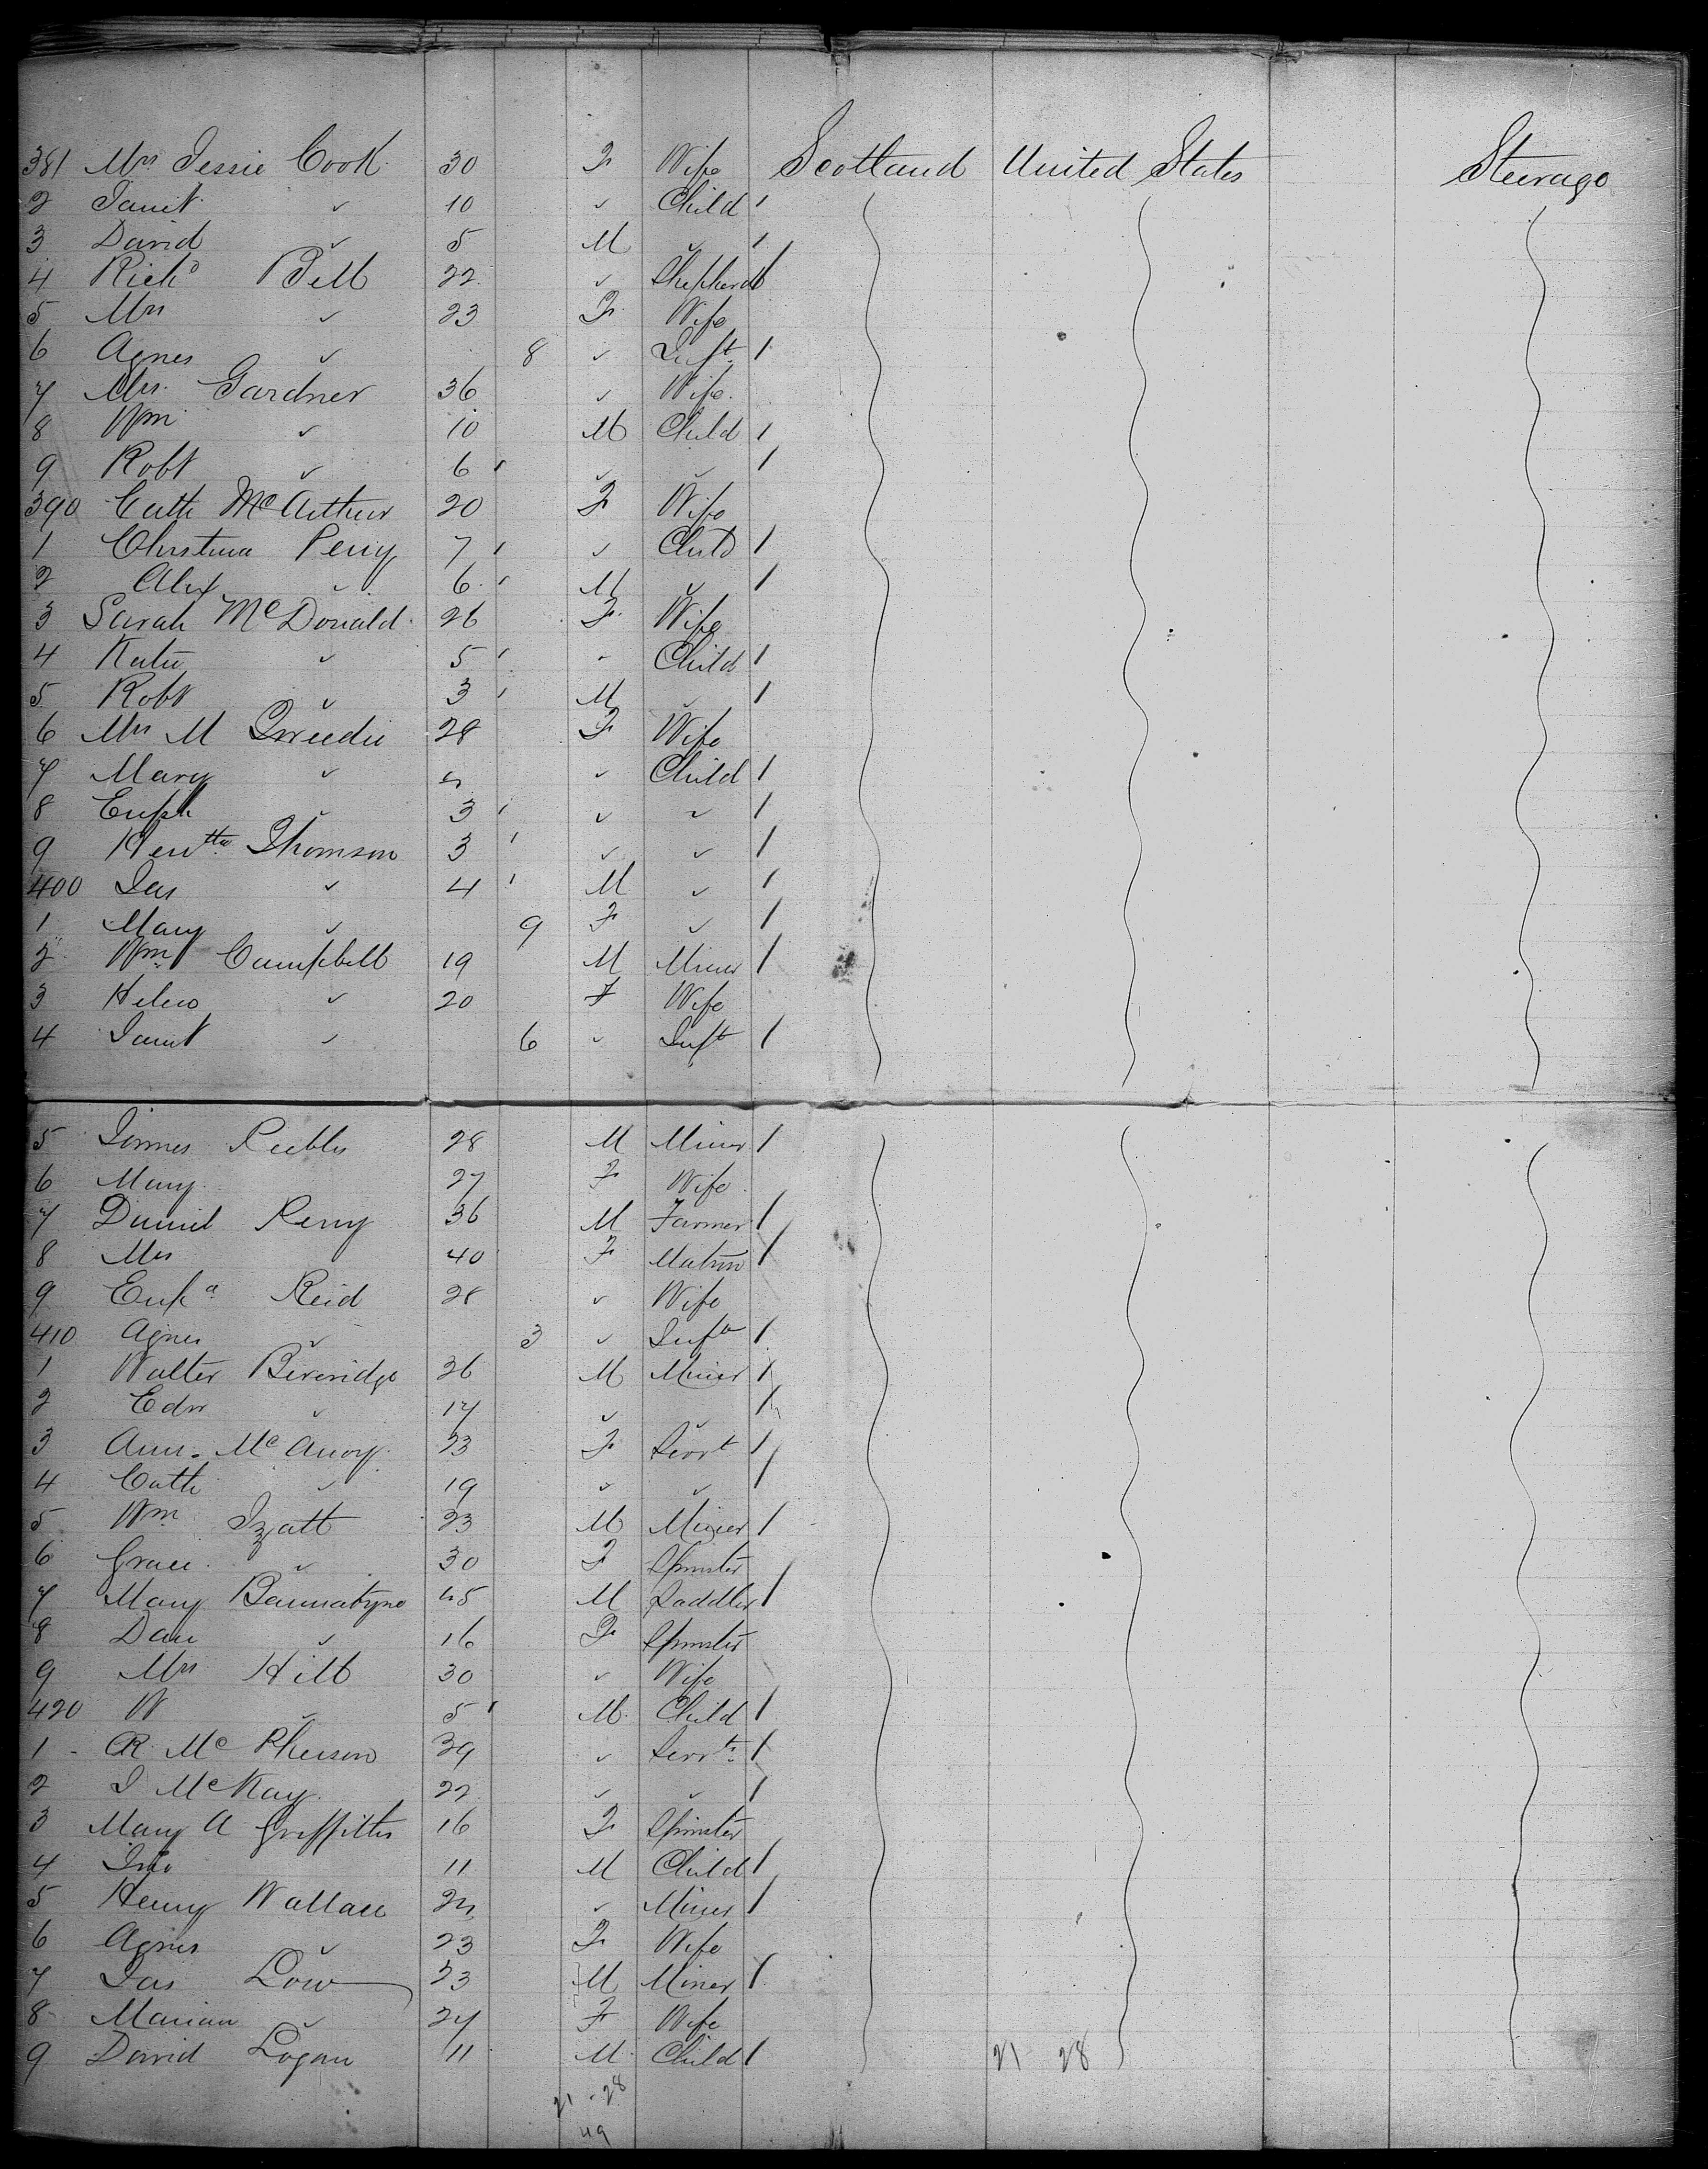 381 Mrs Jessie Cook 30 F Wife Scotland United States Steerage
2 Janet ✓ 10 ✓ Child /
3 David ✓ 5 M ✓ /
4 Richd Bell 22 ✓ Shepherd /
5 Mrs ✓ 23 F Wife
6 Agnes ✓ 8 ✓ Inft /
7 Mrs Gardner 36 ✓ Wife
8 Wm ✓ 10 M Child /
9 Robt ✓ 6 ✓ ✓ /
390 Cath McArthur 20 F Wife
1 Christina Perry 7 ✓ Child /
2 Alex ✓ 6 M ✓ /
3 Sarah McDonald 26 F Wife
4 Katie ✓ 5 " Child /
5 Robt ✓ 3 M ✓ /
6 Mrs M Tweedie 28 F Wife
7 Mary ✓ 4 ✓ Child /
8 Euph ✓ 3 ✓ ✓ /
9 Hentta Thomson 3 ✓ ✓ /
400 Jas ✓ 4 M ✓ /
1 Mary ✓ 9 F ✓ /
2 Wm Campbell 19 M Miner /
3 Helen ✓ 20 F Wife
4 Janet ✓ 6 ✓ Inft /
5 James Peebles 28 M Miner /
6 Mary 27 F Wife
7 Daniel Perry 36 M Farmer /
8 Mrs 40 F Matron /
9 Eupa Reid 28 ✓ Wife
410 Agnes ✓ 3 ✓ Inft /
1 Walter Beveridge 26 M Miner /
2 Edw ✓ 17 ✓ ✓ /
3 Ann McAvoy 23 F Servt /
4 Cath ✓ 19 ✓ ✓ /
5 Wm Izatt 23 M Miner /
6 Grace ✓ 30 F Spinster
7 Mary Bannatyne 45 M Saddler /
8 Dan ✓ 16 F Spinster
9 Mrs Hill 30 ✓ Wife
420 W ✓ 5 M Child /
1 R McPherson 39 ✓ Servt /
2 J McKay 22 ✓ ✓ /
3 Mary A Griffiths 16 F Spinster
4 Jno 11 M Child /
5 Henry Wallace 24 ✓ Miner /
6 Agnes ✓ 23 F Wife
7 Jas Low 23 M Miner /
8 Marian ✓ 24 F Wife
9 David Logan 11 M Child / 21 28
21 - 28
49